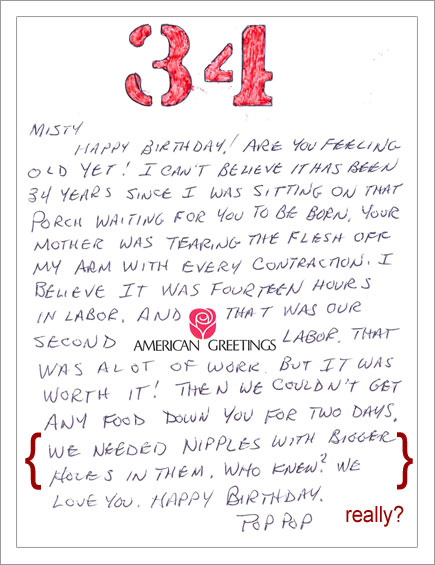 34
MISTY
HAPPY BIRTHDAY! ARE YOU FEELING
OLD YET! I CAN'T BELIEVE IT HAS BEEN
34 YEARS SINCE I WAS SITTING ON THAT
PORCH WAITING FOR YOU TO BE BORN. YOUR
MOTHER WAS TEARING THE FLESH OFF
MY ARM WITH EVERY CONTRACTION. I
BELIEVE IT WAS FOURTEEN HOURS
IN LABOR. AND THAT WAS OUR
SECOND LABOR. THAT
AMERICAN GREETINGS
WAS A LOT OF WORK. BUT IT WAS
WORTH IT! THEN WE COULDN'T GET
ANY FOOD DOWN YOU FOR TWO DAYS.
{ WE NEEDED NIPPLES WITH BIGGER }
HOLES IN THEM. WHO KNEW? WE
LOVE YOU. HAPPY BIRTHDAY.
POP POP
really?